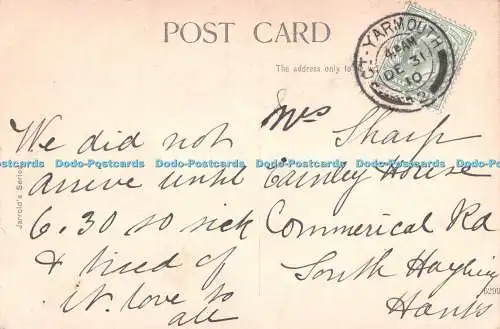 POST CARD
The address only to
GT. YARMOUTH
4.8 AM
DE 31
10
Jarrold's Series
We did not
arrive until
6.30 so sick
& tired of
it. love to
all
Mrs Sharp
House
Commerical Rd
South Hayling
Hants
Dodo-Postcards Dodo-Postcards Dodo-Postcards Dodo-Postcards